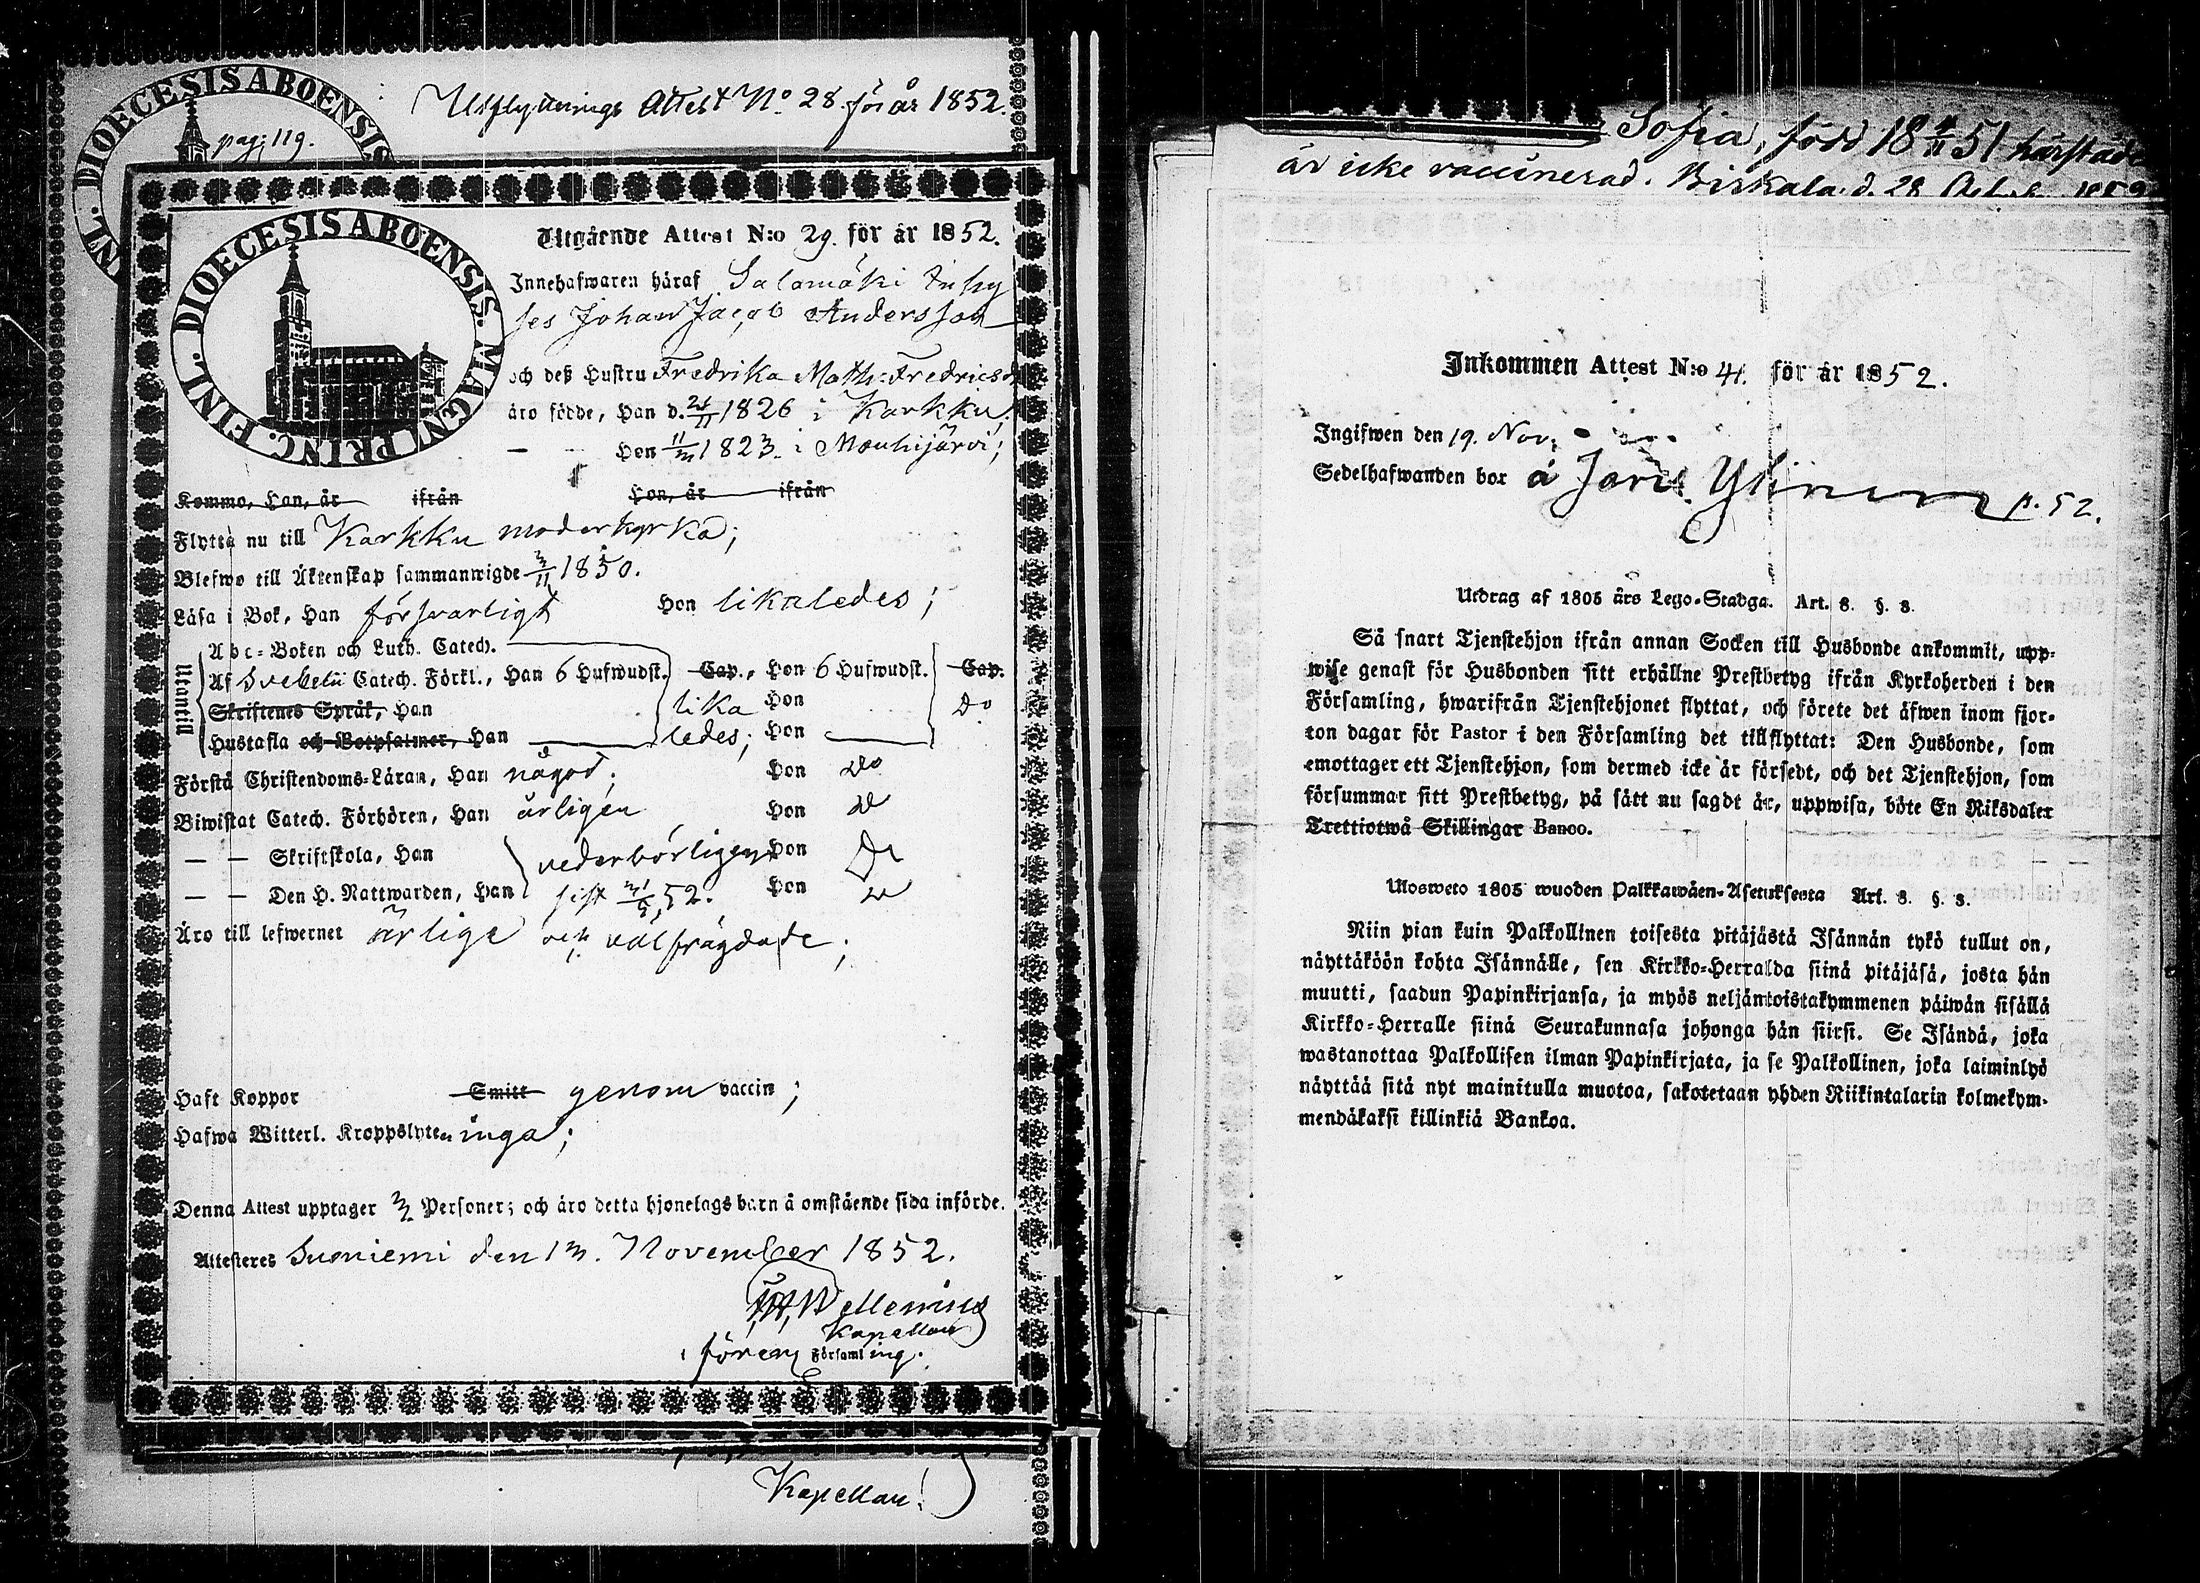 DIOECESIS ABOENSIS
pag; 119.
Utflyttnings Attest No 28 för år 1852.
FINL. DIOECESIS ABOENSIS. MAGN PRINC.
Utgående Attest N:o 29. för år 1852.
Innehafwaren häraf Salomäki
Johan Jacob Andersson
och deß Hustru Fredrika Math: Fredricsd
äro födde, Han d. 1826 i Karkku;
— — Hon 11/3 1823. i Mouhijärvi;
Komma, Han, år ifrån Hon, år ifrån
Flytta nu till Karkku moderkyrka;
Blefwo till Äktenskap sammanwigde 3/11 1850.
Läsa i Bok, Han försvarligt Hon likaledes;
Utantill
Abc-Boken och Luth. Catech.
Af Svebelii Catech. Förkl., Han 6 Hufwudst. Cap., Hon 6 Hufwudst. Cap.
Skriftenes Språk, Han lika Hon Do
Hustafla och Botpsalmer, Han ledes; Hon
Förstå Christendoms-Läran, Han något; Hon Do
Biwistat Catech. Förhören, Han årligen Hon Do
— — Skriftskola, Han vederbörligen Hon Do
— — Den H. Nattwarden, Han sist 52. Hon Do
Äro till lefwernet ärlige och välfrägdade;
Haft Koppor Smitt genom vaccin;
Hafwa Witterl. Kroppslyten inga;
Denna Attest upptager Personer; och äro detta hjonelags barn å omstående sida införde.
Attesteres Suoniemi den 13. November 1852.
Kapellan
förening Församling.
Kapellan.
Sofia, född 18 51 härstädes
är icke vaccinerad. Birkala d. 28
Inkommen Attest N:o 41. för år 1852.
Ingifwen den 19. Nov.
Sedelhafwanden bor å p. 52.
Utdrag af 1805 års Lego-Stadga. Art. 8. §. 3.
Så snart Tjenstehjon ifrån annan Socken till Husbonde ankommit, upp-
wise genast för Husbonden sitt erhållne Prestbetyg ifrån Kyrkoherden i den
Församling, hwarifrån Tjenstehjonet flyttat, och förete det äfwen inom fjor-
ton dagar för Pastor i den Församling det tillflyttat: Den Husbonde, som
emottager ett Tjenstehjon, som dermed icke är försedt, och det Tjenstehjon, som
försummar sitt Prestbetyg, på sätt nu sagdt är, uppwisa, böte En Riksdaler
Trettiotwå Skillingar Banco.
Ulosweto 1805 wuoden Palkkawäen-Asetuksesta Art. 8. §. 3.
Niin pian kuin Palkollinen toisesta pitäjästä Isännän tykö tullut on,
näyttäköön kohta Isännälle, sen Kirkko-Herralda siinä pitäjäsä, josta hän
muutti, saadun Papinkirjansa, ja myös neljäntoistakymmenen päiwän sisällä
Kirkko-Herralle siinä Seurakunnasa johonga hän siirsi. Se Isändä, joka
wastanottaa Palkollisen ilman Papinkirjata, ja se Palkollinen, joka laiminlyö
näyttää sitä nyt mainitulla muotoa, sakotetaan yhden Riikintalarin kolmekym-
mendäkaksi killinkiä Bankoa.